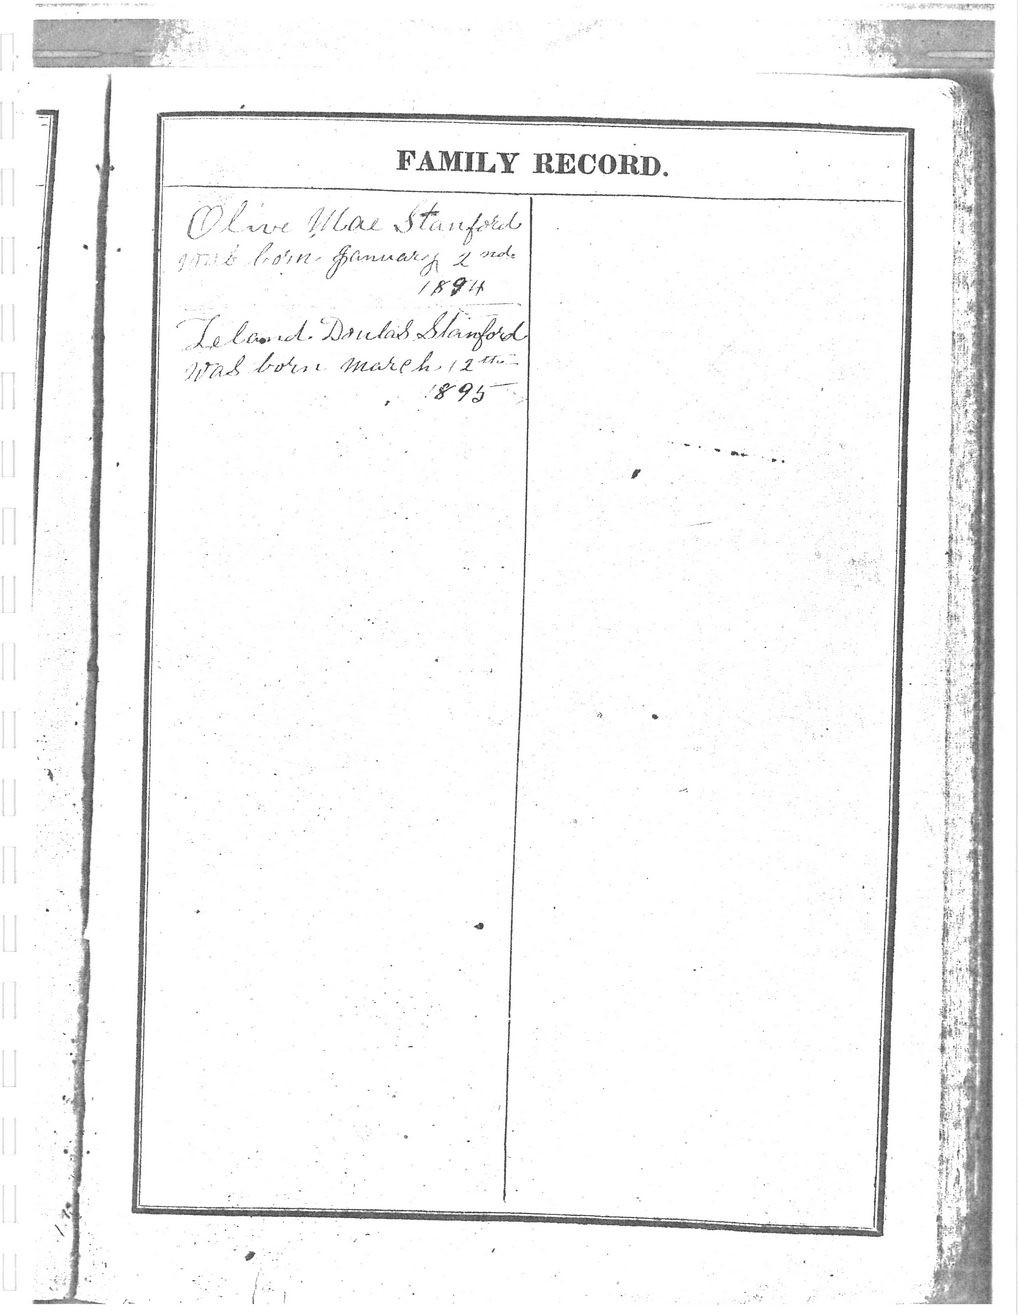 FAMILY RECORD.
Olive Mae Stanford
was born January 2nd.
1894
Leland Doulas Stanford
was born march 12th
1895